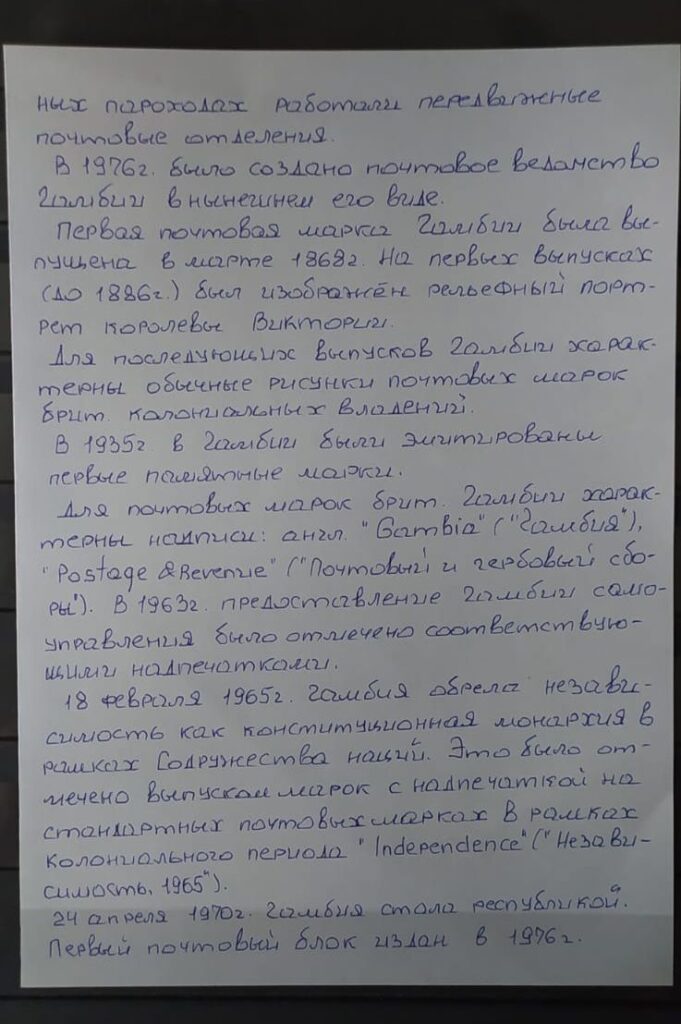 ных пароходах работали передвижные
почтовые отделения.
В 1976г. было создано почтовое ведомство
Гамбии в нынешнем его виде.
Первая почтовая марка Гамбии была вы-
пущена в марте 1868г. На первых выпусках
(до 1886г.) был изображён рельефный порт-
рет королевы Виктории.
Для последующих выпусков Гамбии харак-
терны обычные рисунки почтовых марок
брит. колониальных владений.
В 1935г. в Гамбии были эмитированы
первые памятные марки.
Для почтовых марок брит. Гамбии харак-
терны надписи: англ. "Gambia" ("Гамбия"),
"Postage & Revenue" ("Почтовый и гербовый сбо-
ры"). В 1963г. предоставление Гамбии само-
управления было отмечено соответствую-
щими надпечатками.
18 февраля 1965г. Гамбия обрела незави-
симость как конституционная монархия в
рамках Содружества наций. Это было от-
мечено выпуском марок с надпечаткой на
стандартных почтовых марках в рамках
колониального периода "Independence" ("Незави-
симость, 1965").
24 апреля 1970г. Гамбия стала республикой.
Первый почтовый блок издан в 1976г.